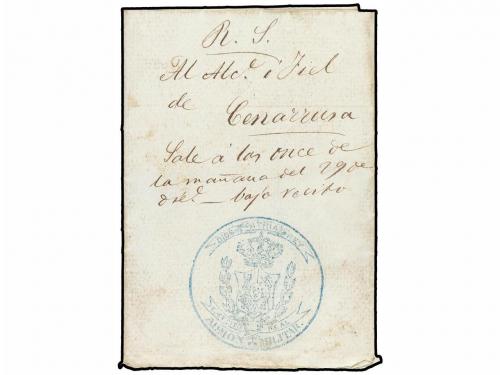 R. S.
Al Alc.e ó Fiel
de
Cenarrusa
Sale á las once de
la mañana del 29 de
dic.e — bajo recibo
DIOS PATRIA REY
REAL
MILITAR